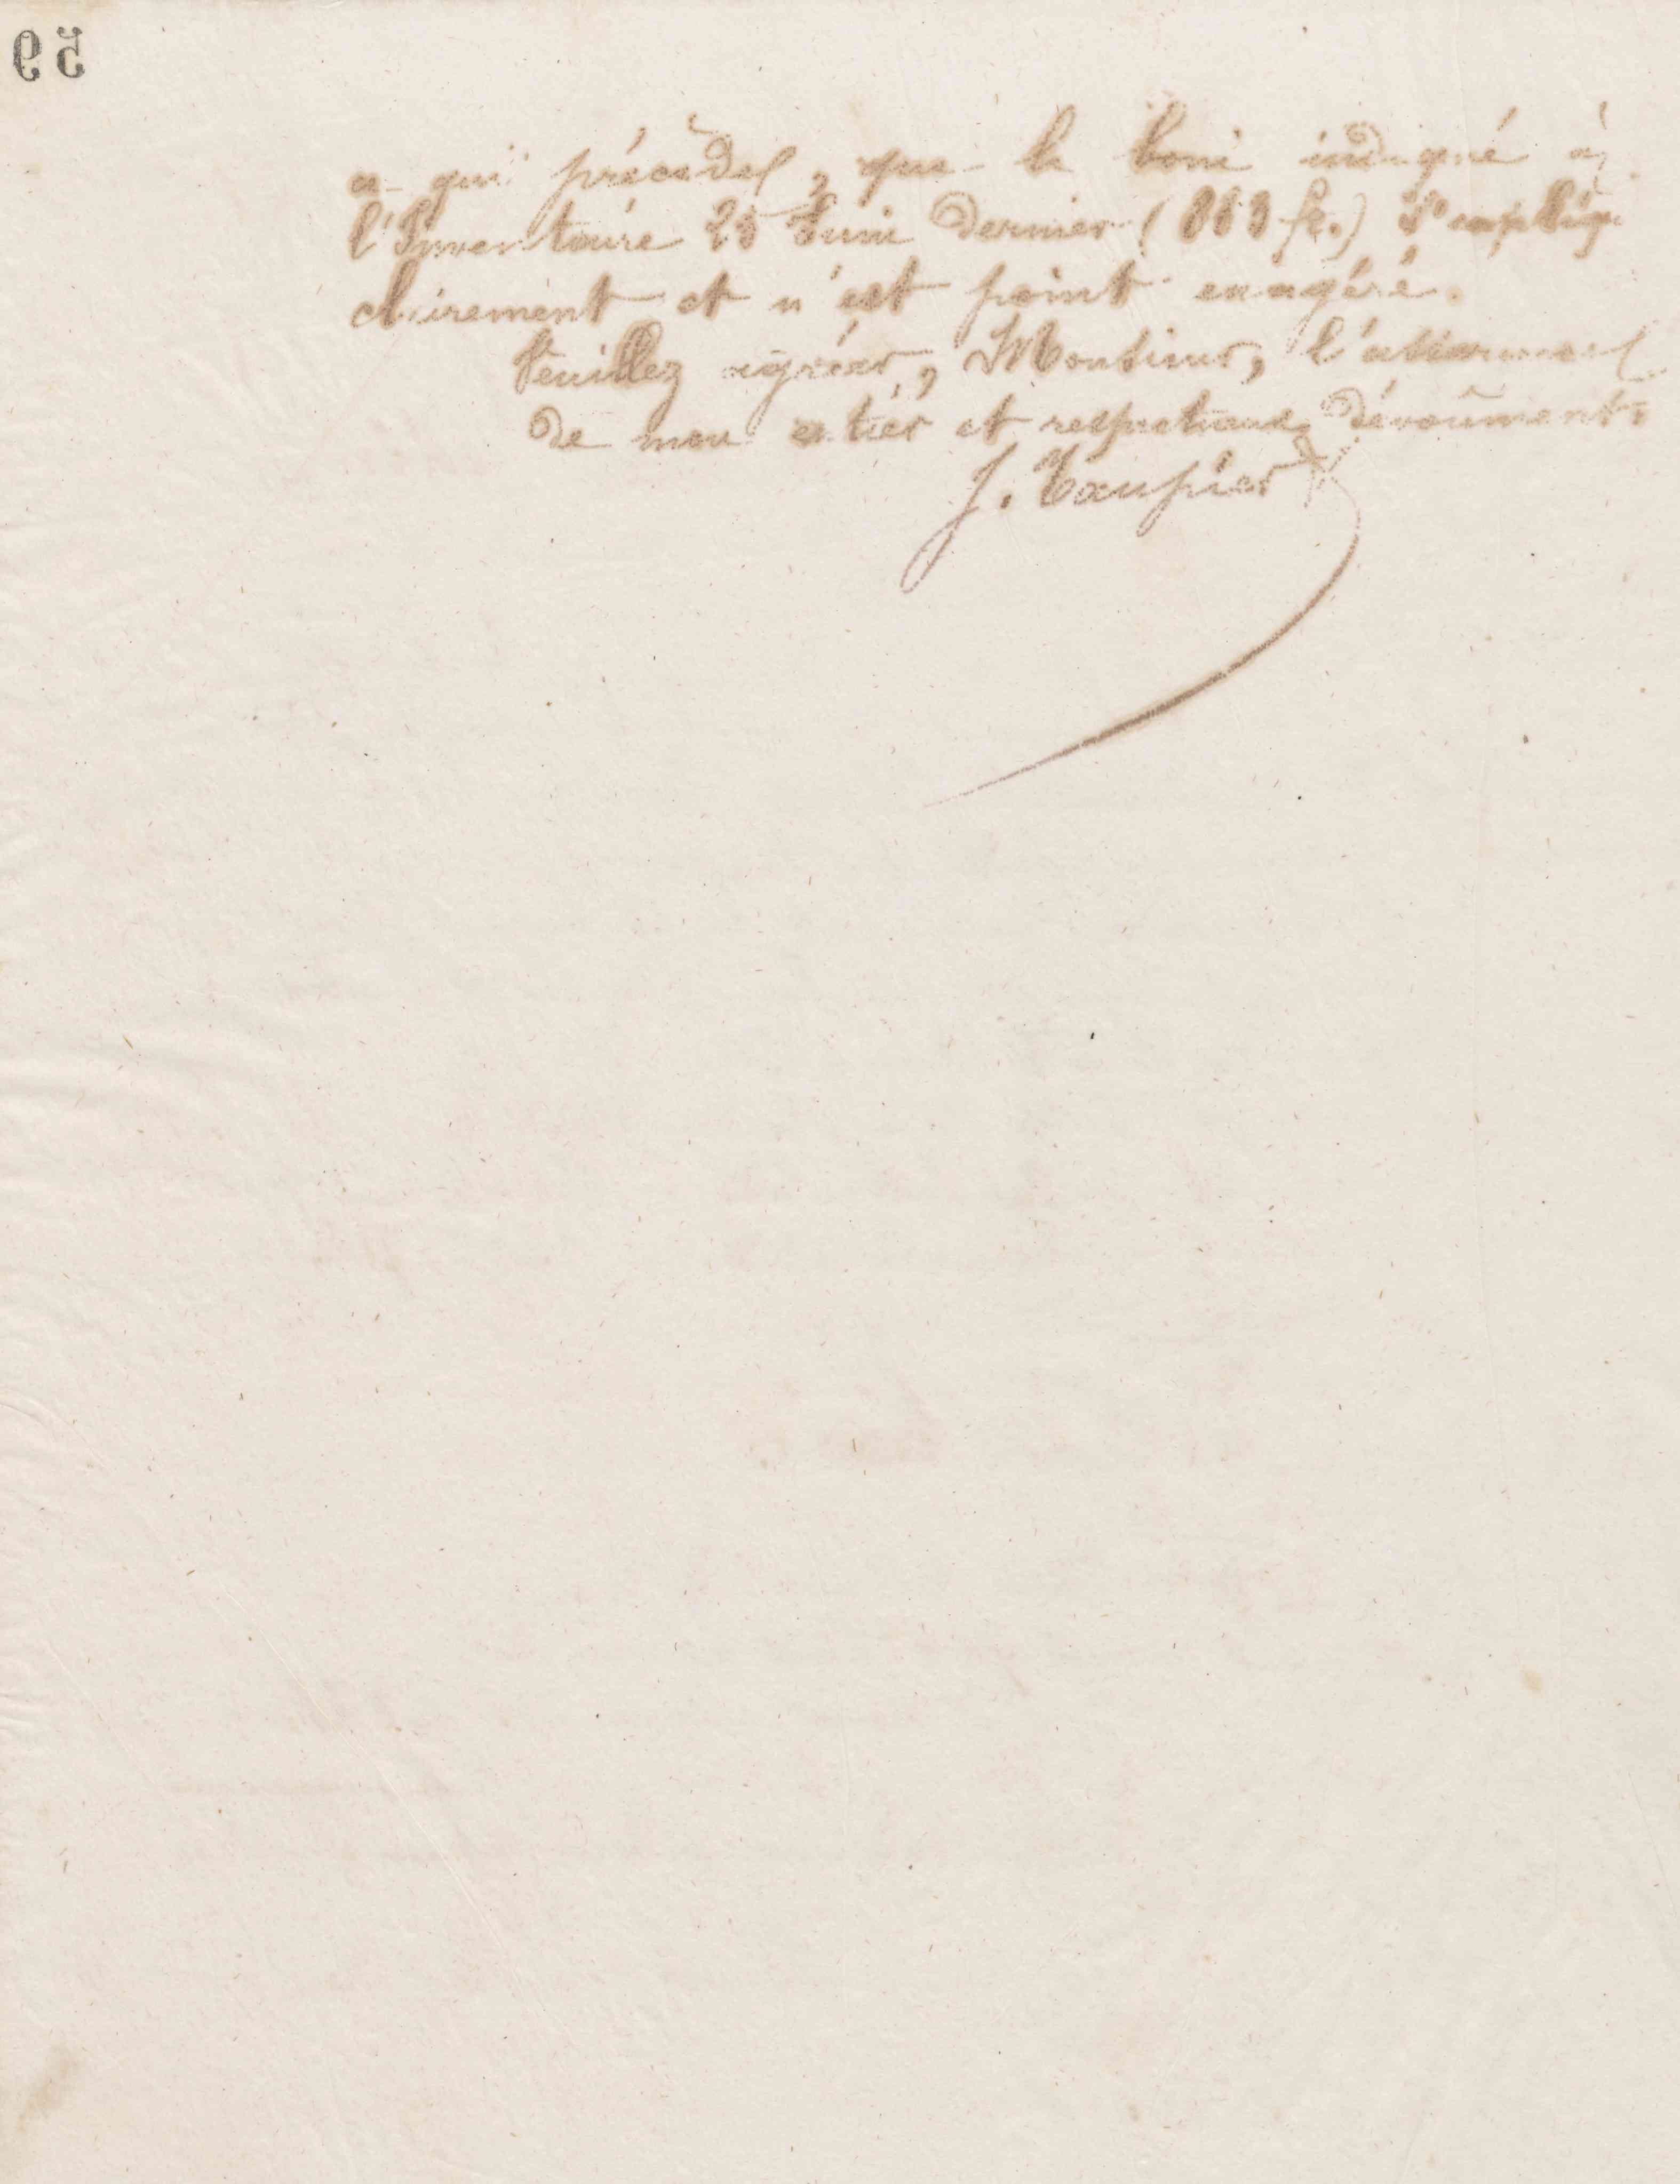 59
ce qui précède, que le boni indiqué à
l'Inventaire 25 Juin dernier ( fr.) s'expliq
clairement et n'est point exagéré.
Veuillez agréer, Monsieur, l'assurance
de mon entier et respectueux dévoûment.
J. Taupier